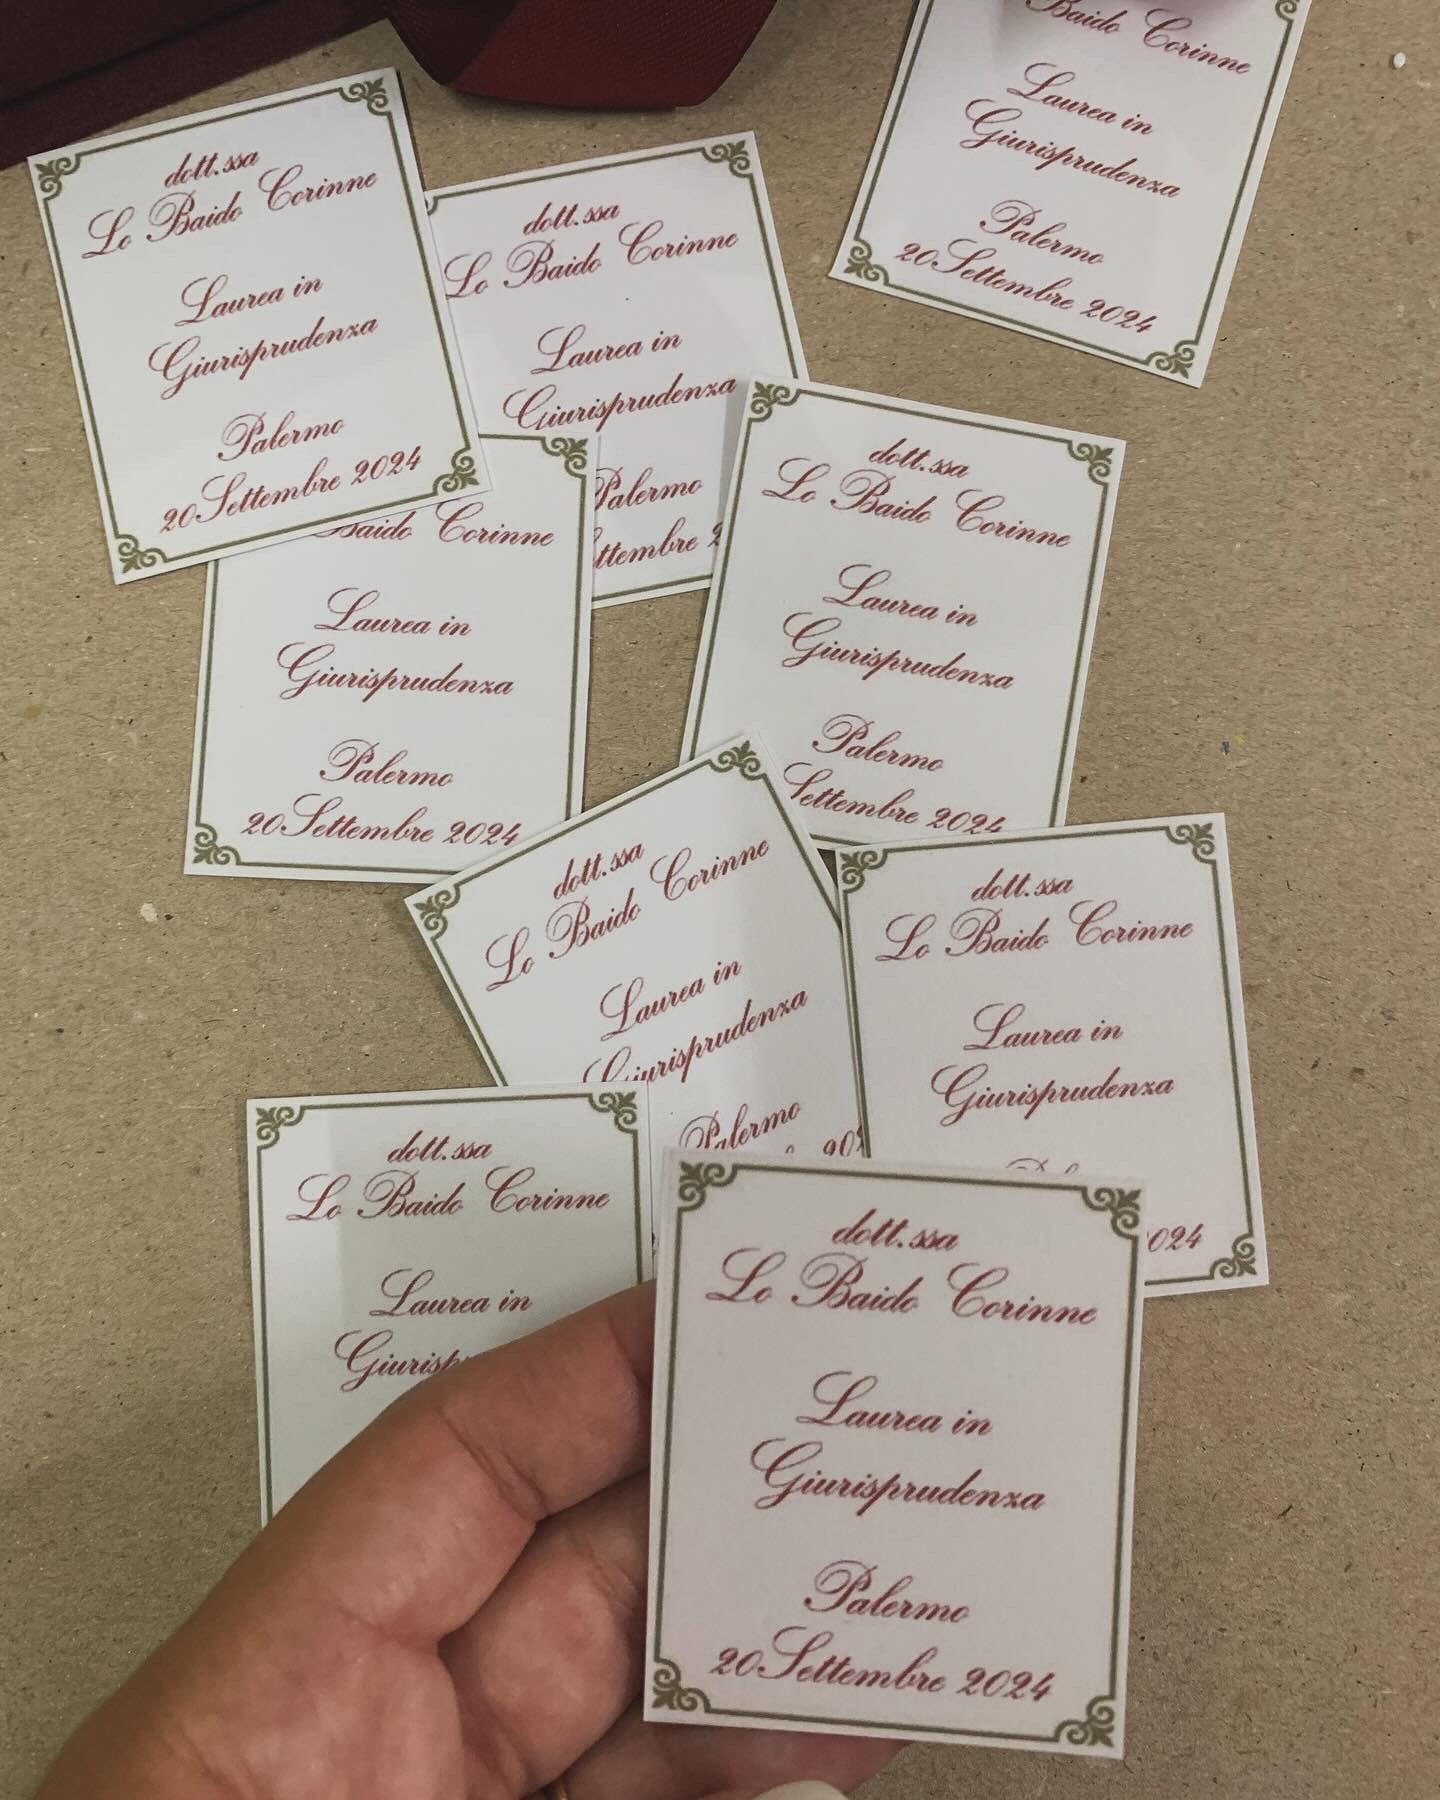 dott.ssa
Lo Baido Corinne
Laurea in
Giurisprudenza
Palermo
20 Settembre 2024
dott.ssa
Lo Baido Corinne
Laurea in
Giurisprudenza
Palermo
2
Baido Corinne
Laurea in
Giurisprudenza
Palermo
20 Settembre 2024
Baido Corinne
Laurea in
Giurisprudenza
Palermo
20 Settembre 2024
dott.ssa
Lo Baido Corinne
Laurea in
Giurisprudenza
Palermo
Settembre 2024
dott.ssa
Lo Baido Corinne
Laurea in
Giurisprudenza
Palermo
dott.ssa
Lo Baido Corinne
Laurea in
Giurisprudenza
2024
dott.ssa
Lo Baido Corinne
Laurea in
dott.ssa
Lo Baido Corinne
Laurea in
Giurisprudenza
Palermo
20 Settembre 2024